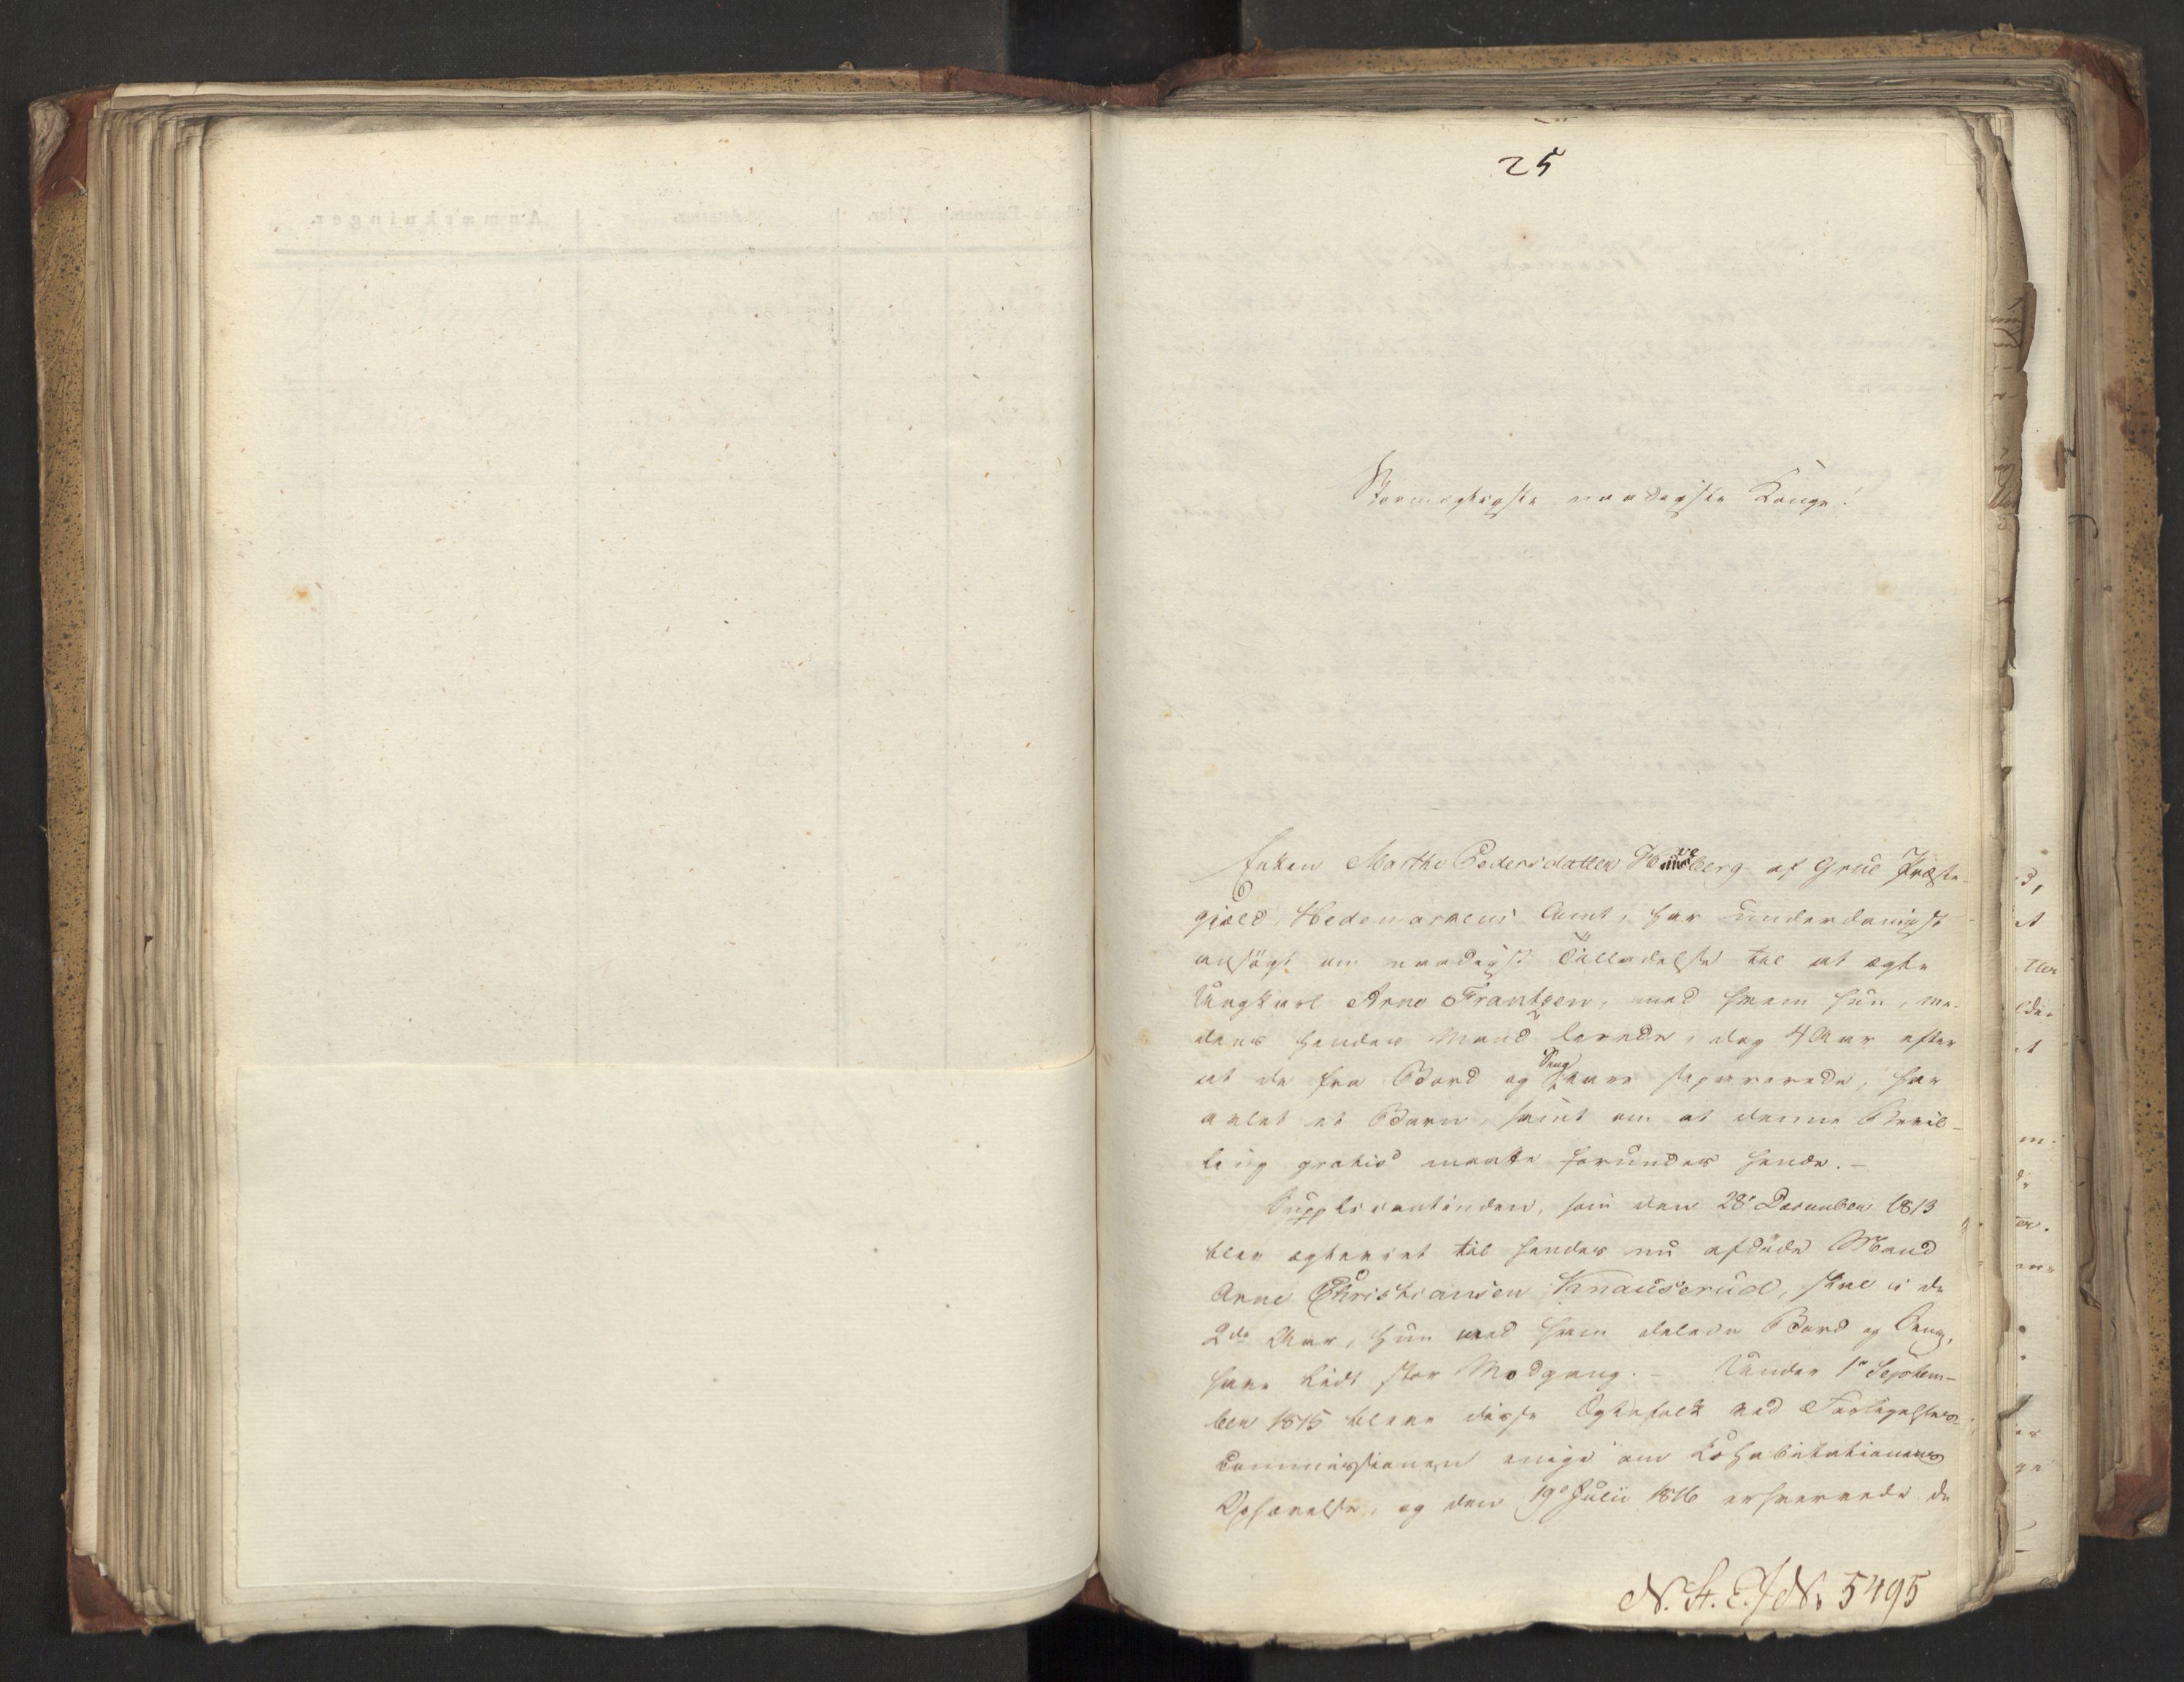 25
Stormægtigste naadigste Konge!
Enken Marthe Pedersdatter Hveberg af Grue Præste-
gjæld, Hedemarkens Amt, har underdanigst
ansøgt om naadigst Tilladelse til at ægte
Ungkarl Arne Frantzen, med hvem hun, me-
dens hendes Mand levede, dog 4 Aar efter
at de fra Bord og Seng vare separerede, har
avlet et Barn, samt om at denne Bevil-
ling gratis maatte forundes hende. –
Supplicantinden, som den 28de December 1813
blev ægteviet til hendes nu afdøde Mand
Arne Christiansen Knauserud, skal i de
2de Aar, hun med ham deelede Bord og Seng,
have lidt stor Modgang. – Under 1ste Septem-
ber 1815 bleve disse Ægtefolk ved Forligelses-
Commissionen enige om Cohabitationens
Ophævelse, og den 19de Julii 1816 erhvervede de
N. A. E. J No 5495